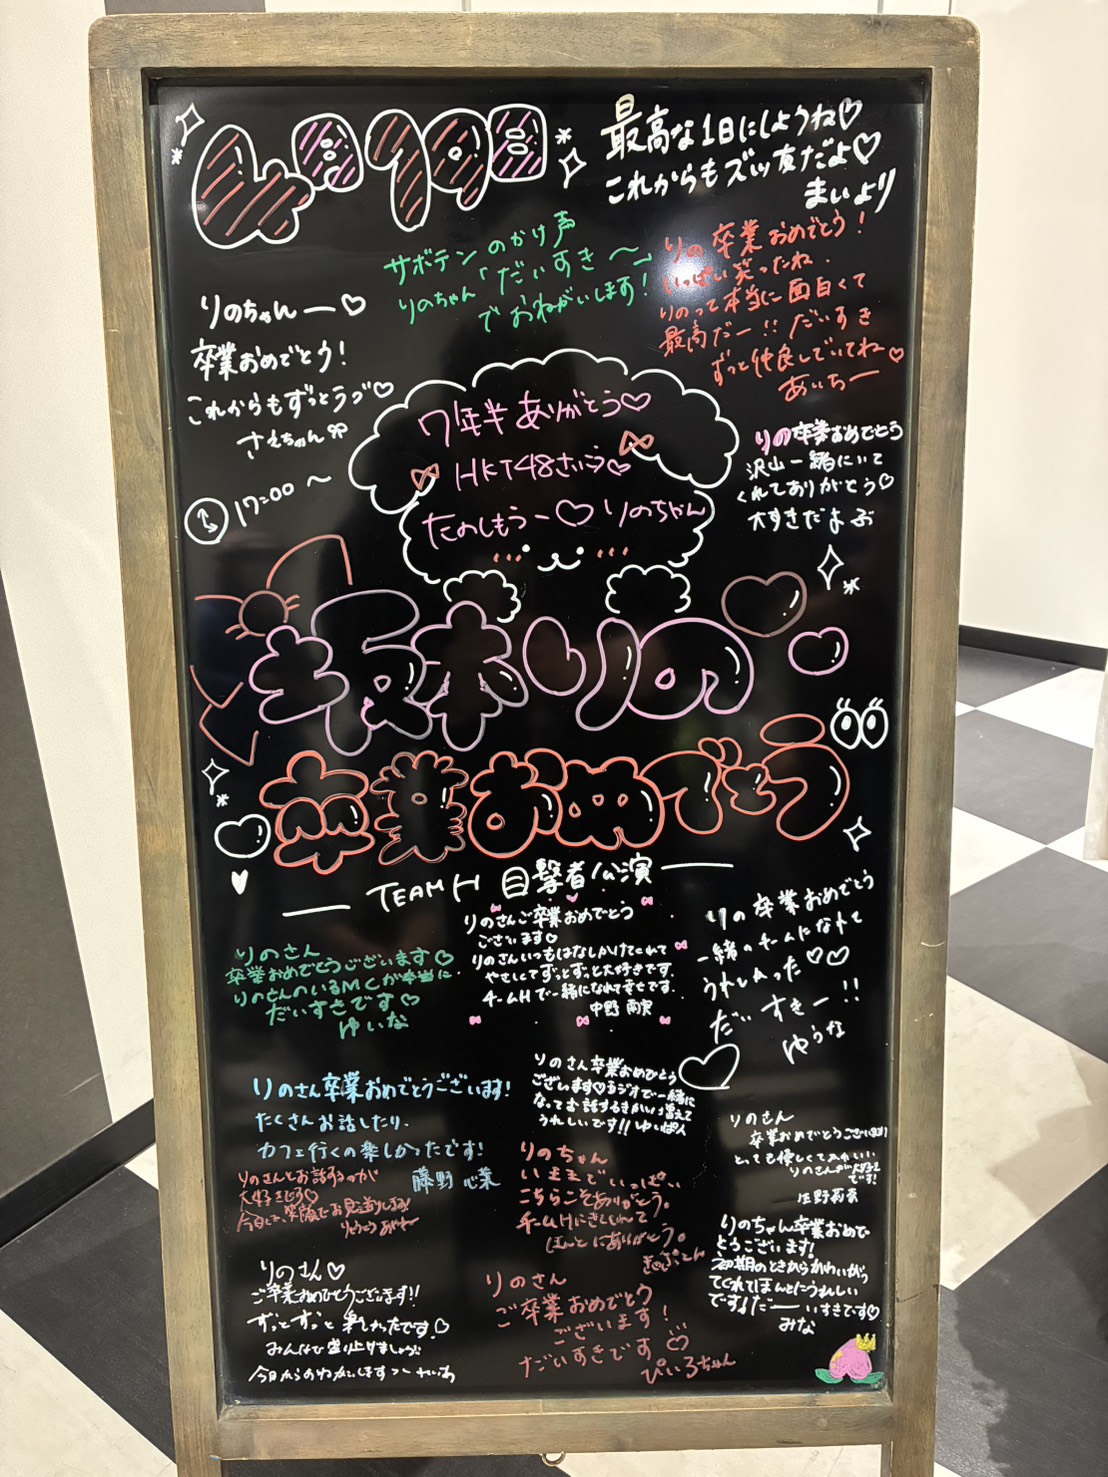 4月19日
最高な1日にしようね♡
これからもズッ友だよ♡
まいより
サボテンのかけ声
りのちゃん「だいすき〜」
でおねがいします!
りの卒業おめでとう!
いっぱい笑ったね.
りのって本当に面白くて
最高だー!!だいすき
ずっと仲良しでいてね♡
あいちー
りのちゃんー♡
卒業おめでとう!
これからもずっとラブ♡
さえちゃん
17:00〜
7年半ありがとう♡
HKT48さいこう♡
たのしもうー♡りのちゃん
りの卒業おめでとう
沢山一緒にいて
くれてありがとう♡
大すきだよぶ
坂本りの
卒業おめでとう
TEAM H 目撃者公演
りのさん
卒業おめでとうございます♡
りのさんのいるMCが本当に
だいすきです♡
ゆいな
りのさんご卒業おめでとう
ございます♡
りのさんいつもはなしかけてくれて
やさしくてずっとずっと大好きです.
チームHで一緒になれて幸せです.
中野 雨実
りの卒業おめでとう
一緒のチームになれて
うれしかった♡♡
だいすきー!!
ゆうな
りのさん卒業おめでとうございます!
たくさんお話したり.
カフェ行くの楽しかったです!
藤野 心葉
りのさんとお話するのが
大好きです♡
今日は、笑顔でお見送りします!
りのさん卒業おめでとう
ございます♡ラジオで一緒に
なってお話するきかい増えて
うれしいです!!ゆいぱん
りのさん
卒業おめでとうございます!
とっても優しくてかわいい
りのさんが大好き
です!
庄野莉菜
りのちゃん
いままでいっぱい
こちらこそありがとう。
チームHにきてくれて
ほんとにありがとう。
りのちゃん卒業おめで
とうございます!
初期のときからかわいがっ
てくれてほんとにうれしい
です!だーいすきです♡
みな
りのさん♡
ご卒業おめでとうございます!!
ずっとずっと
みんなで盛り上げましょう!
りのさん
ご卒業おめでとう
ございます!
だいすきです♡
ぴいろちゃん